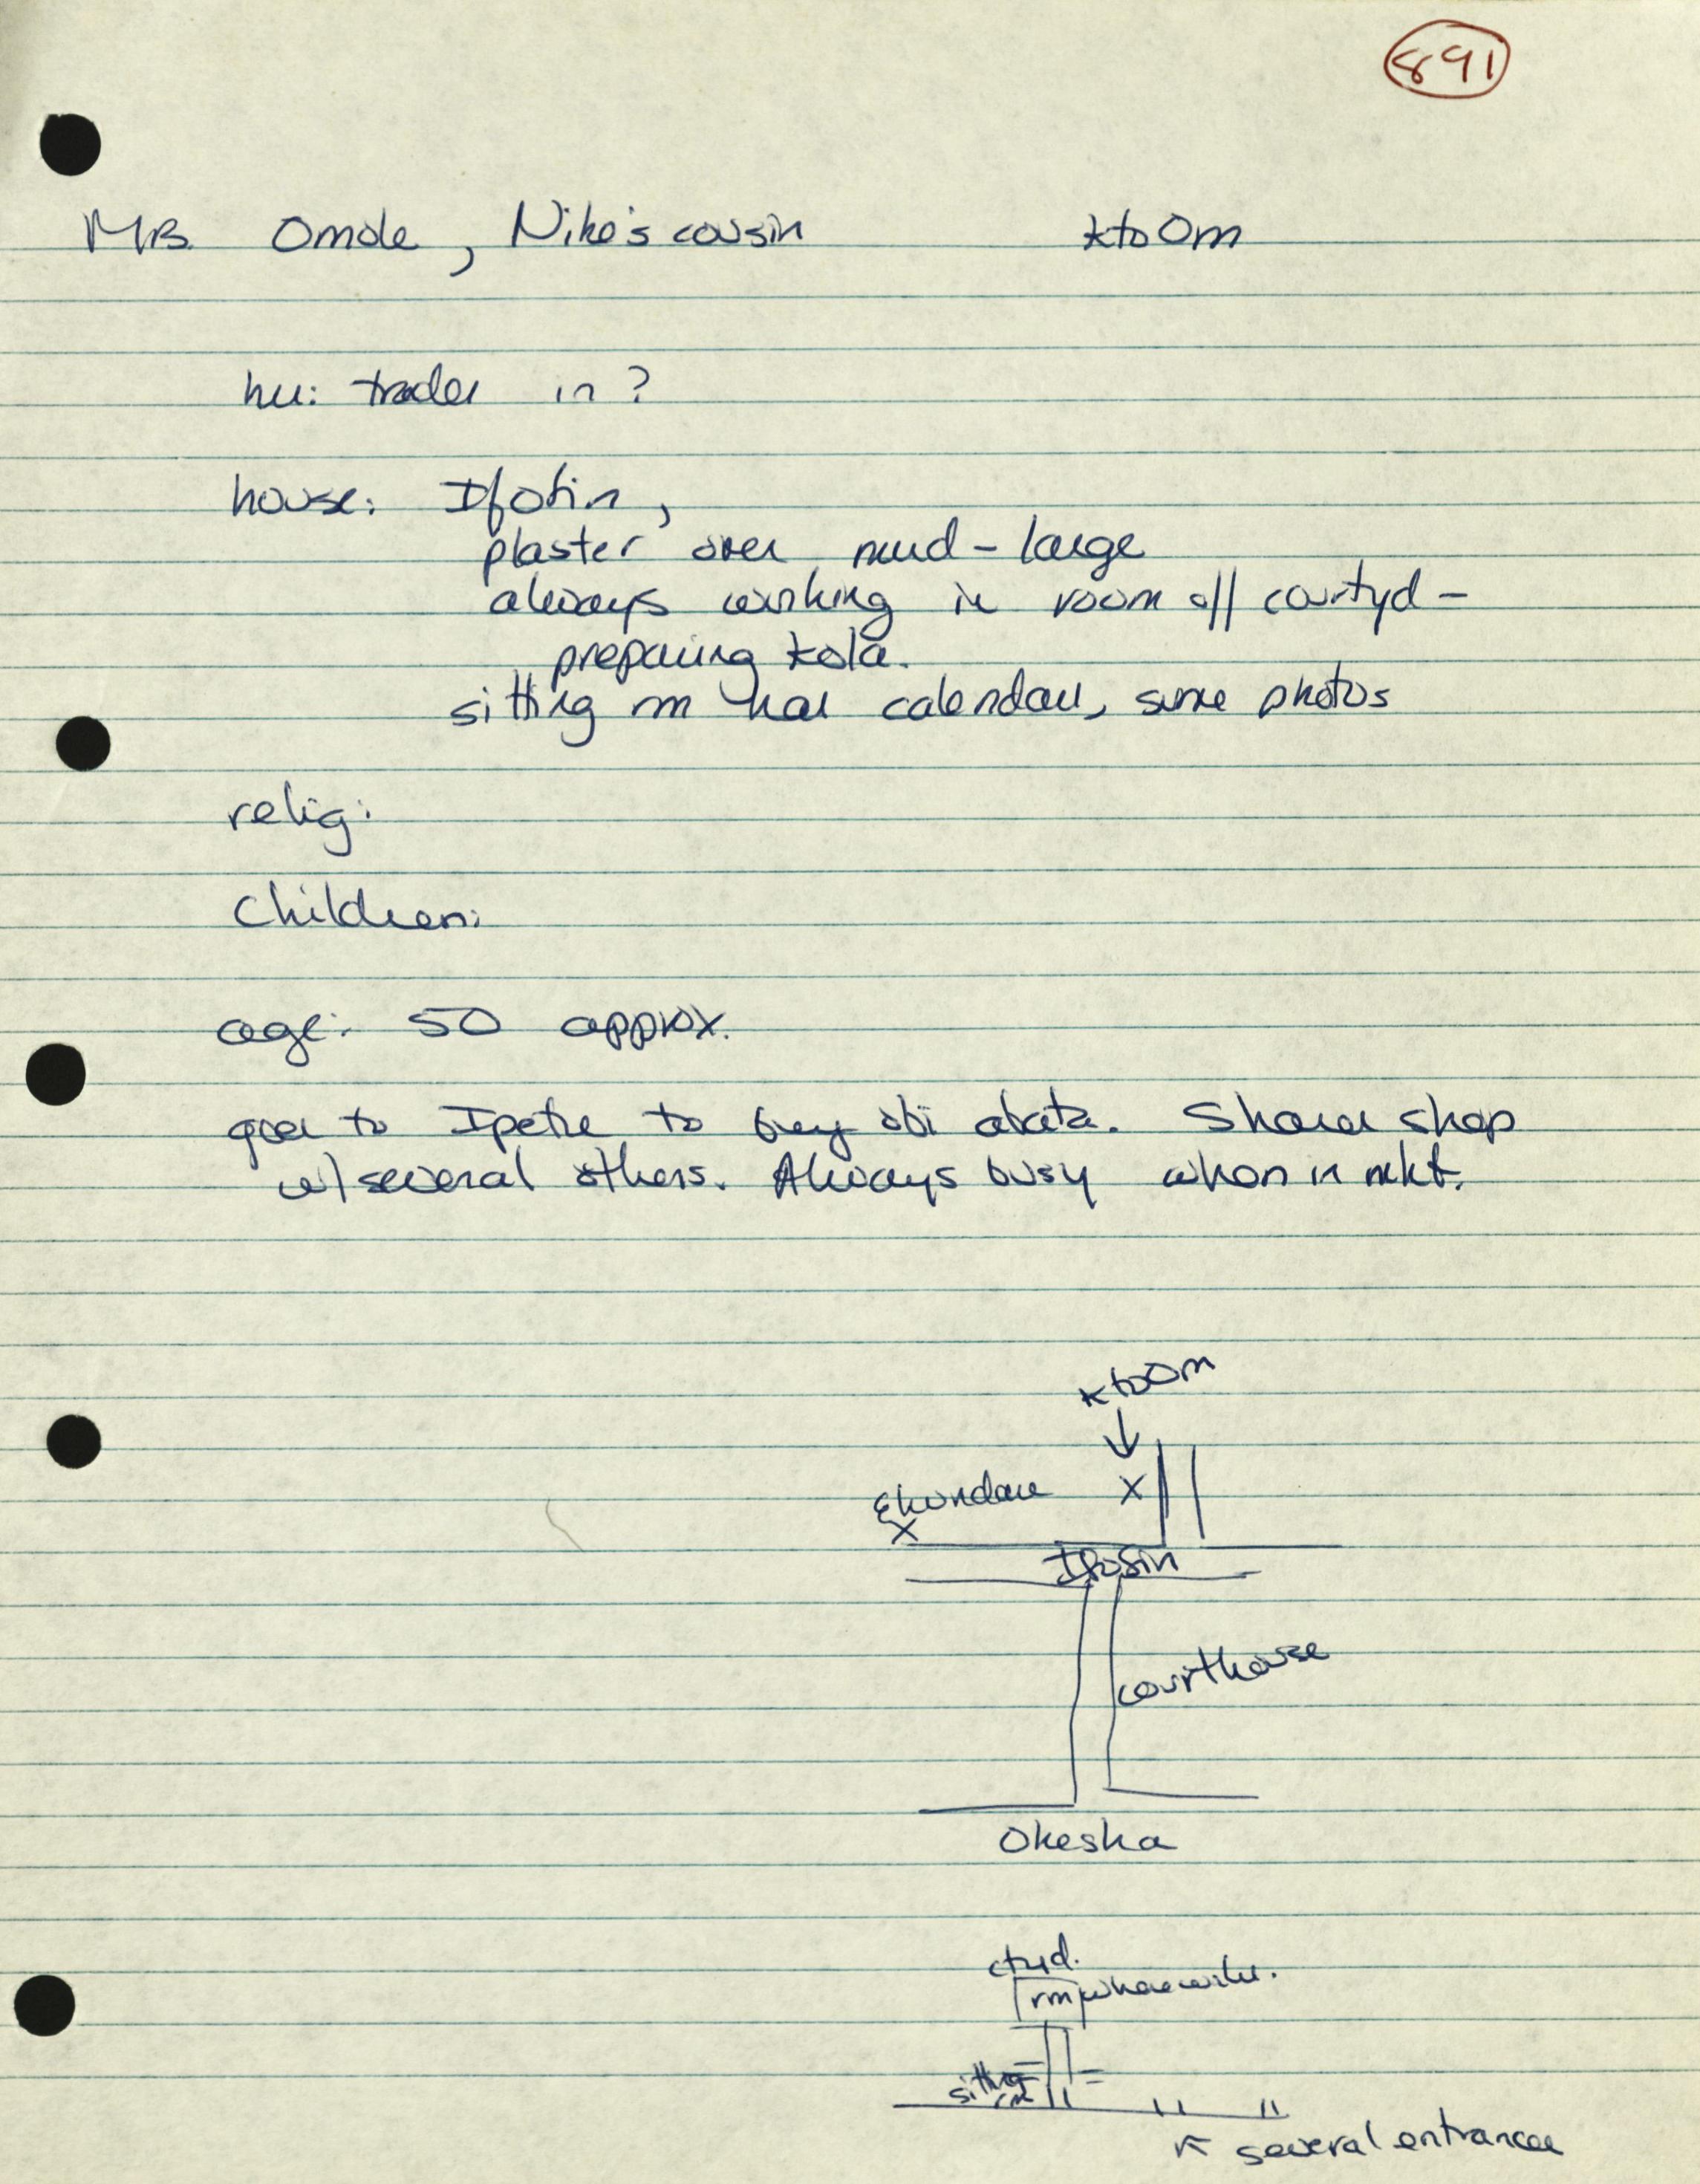 891
Mrs. Omole, Nike's cousin ktoOm
hu: trader in ?
house: Ifosin,
plaster over mud - large
always working in room off courtyd -
preparing kola.
sitting rm has calendars, some photos
relig:
Children:
age: 50 approx.
goes to Ipetu to buy obi abata. Shares shop
w/ several others. Always busy when in mkt.
ktoOm
Ekundare X
X
Ifosin
courthouse
Okesha
ctyd.
rm where works.
sitting rm
several entrances